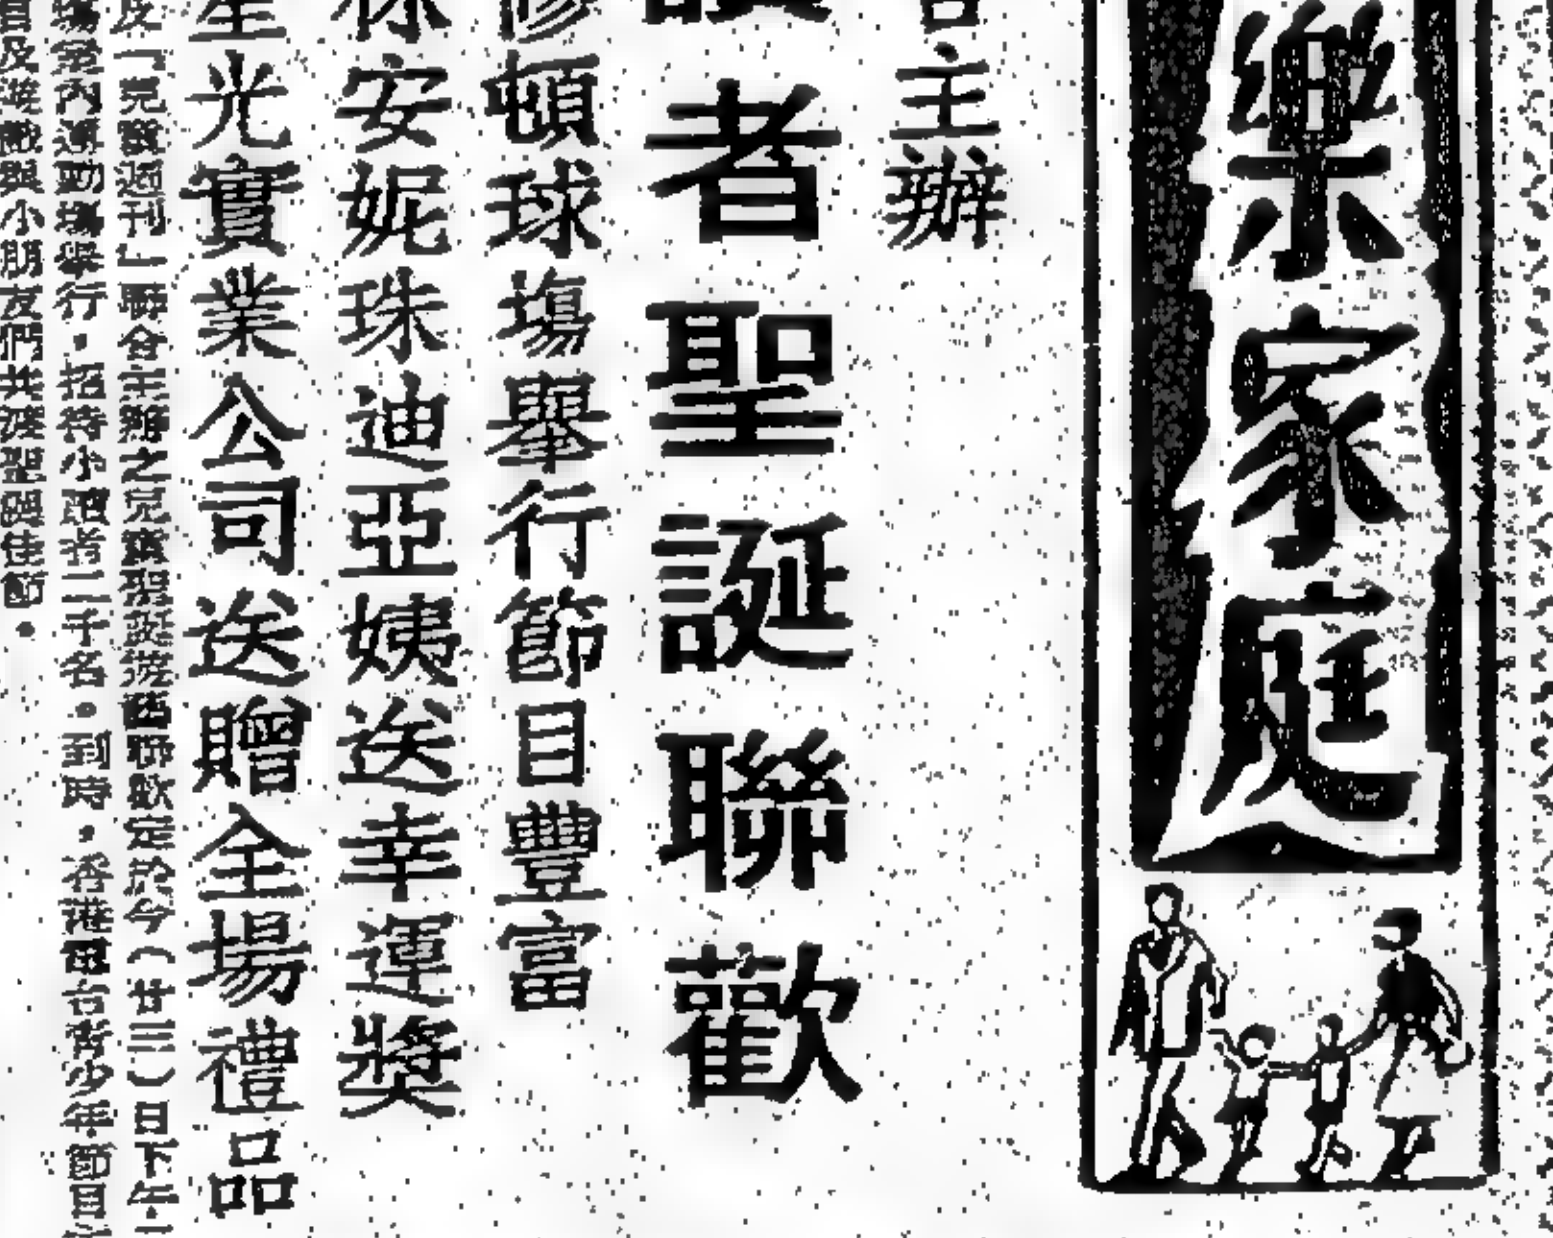 樂家庭
主辦
者聖誕聯歡
頓球場舉行節目豐富
安妮珠迪亞姨送幸運獎
光實業公司送贈全場禮品
週刊」聯合主辦之兒童聖誕遊藝聯歡定於今（廿三）日下午
室內運動場舉行，招待小讀者二千名。到時，香港電台青少年節目
小朋友們共渡聖誕佳節。